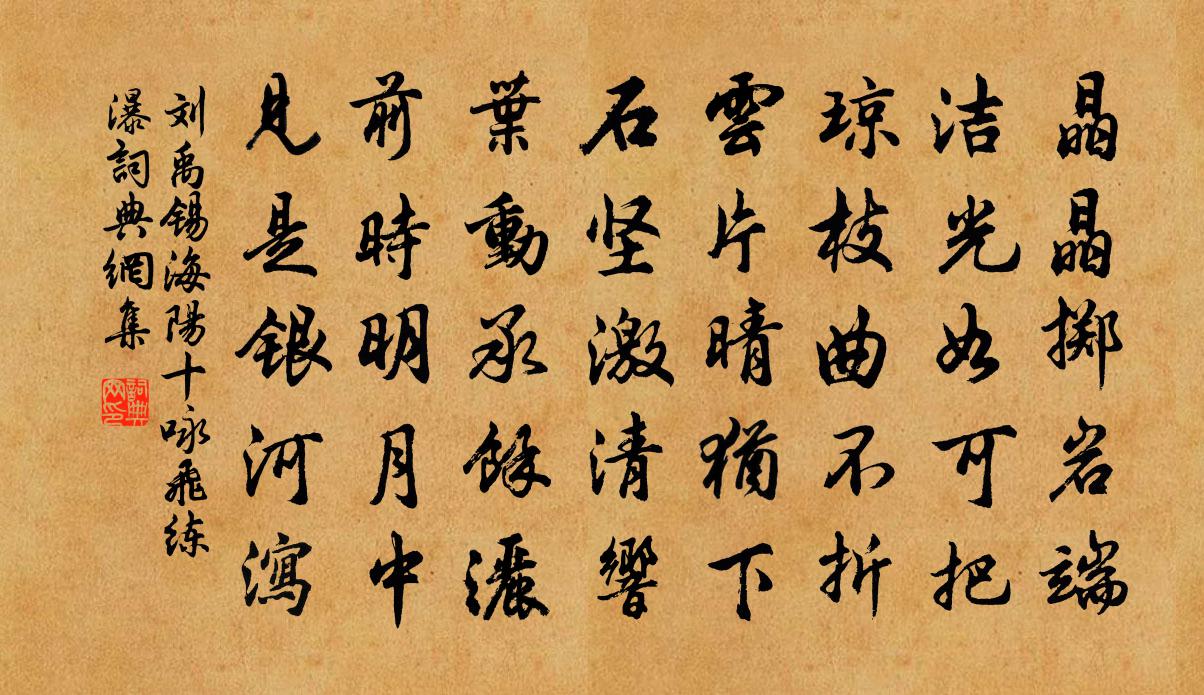 晶晶掷岩端
洁光如可把
琼枝曲不折
雲片晴猶下
石坚激清響
葉動承餘灑
前時明月中
見是銀河瀉
刘禹锡海陽十咏飛练
瀑詞典網集
詞典网印